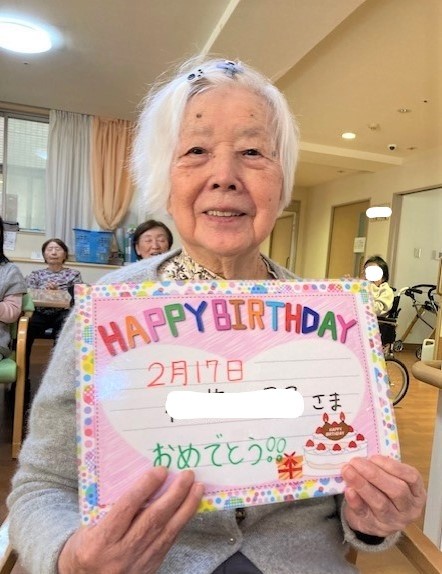 HAPPY BIRTHDAY
2月17日
さま
おめでとう!!
HAPPY BIRTHDAY